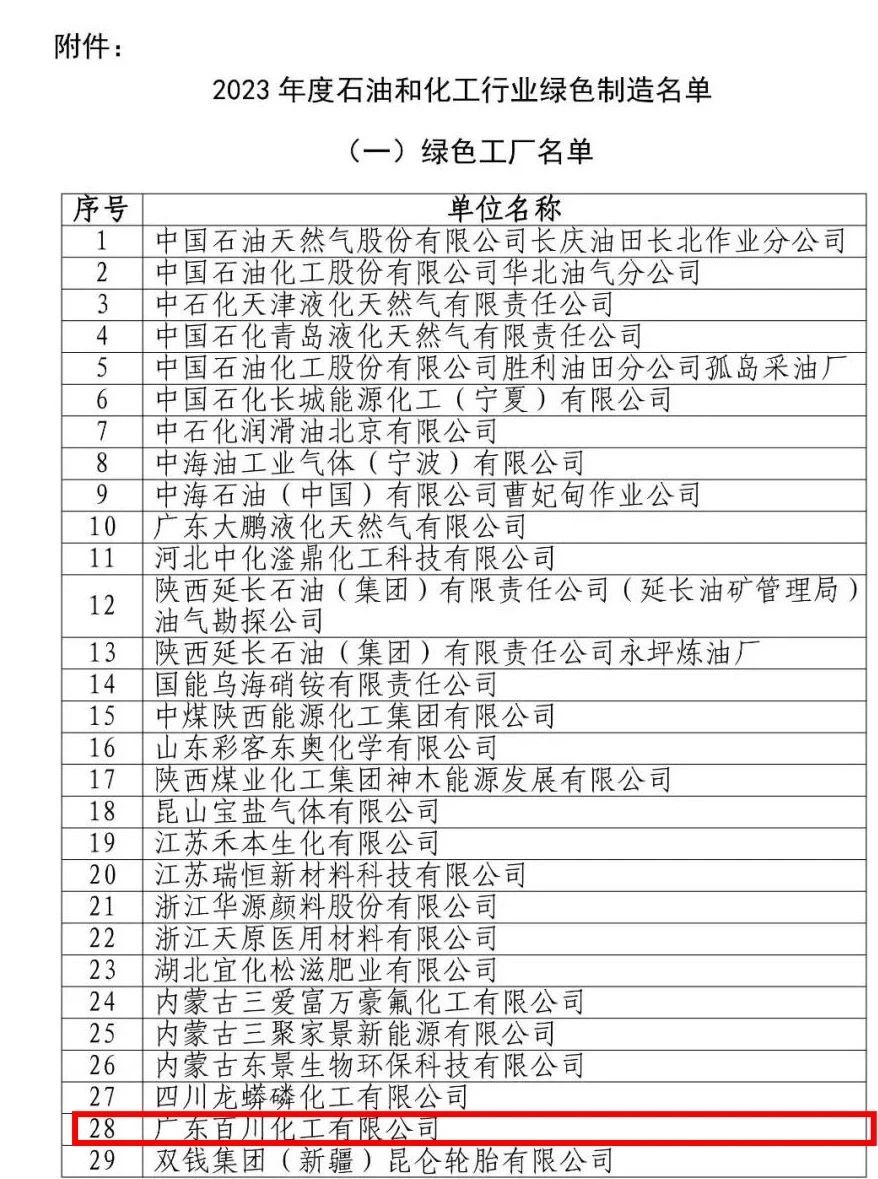 附件：
2023 年度石油和化工行业绿色制造名单
（一）绿色工厂名单
序号 单位名称
1 中国石油天然气股份有限公司长庆油田长北作业分公司
2 中国石油化工股份有限公司华北油气分公司
3 中石化天津液化天然气有限责任公司
4 中国石化青岛液化天然气有限责任公司
5 中国石油化工股份有限公司胜利油田分公司孤岛采油厂
6 中国石化长城能源化工（宁夏）有限公司
7 中石化润滑油北京有限公司
8 中海油工业气体（宁波）有限公司
9 中海石油（中国）有限公司曹妃甸作业公司
10 广东大鹏液化天然气有限公司
11 河北中化滏鼎化工科技有限公司
12 陕西延长石油（集团）有限责任公司（延长油矿管理局）
油气勘探公司
13 陕西延长石油（集团）有限责任公司永坪炼油厂
14 国能乌海硝铵有限责任公司
15 中煤陕西能源化工集团有限公司
16 山东彩客东奥化学有限公司
17 陕西煤业化工集团神木能源发展有限公司
18 昆山宝盐气体有限公司
19 江苏禾本生化有限公司
20 江苏瑞恒新材料科技有限公司
21 浙江华源颜料股份有限公司
22 浙江天原医用材料有限公司
23 湖北宜化松滋肥业有限公司
24 内蒙古三爱富万豪氟化工有限公司
25 内蒙古三聚家景新能源有限公司
26 内蒙古东景生物环保科技有限公司
27 四川龙蟒磷化工有限公司
28 广东百川化工有限公司
29 双钱集团（新疆）昆仑轮胎有限公司